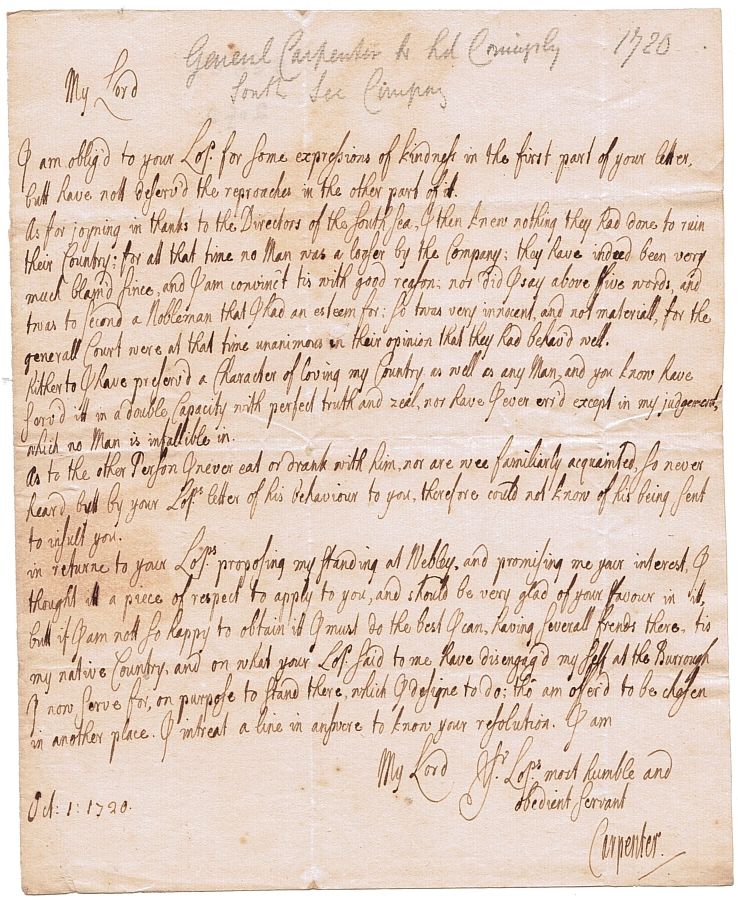 General Carpenter to Ld Coningsby 1720
South Sea Company
My Lord
I am oblig'd to your Lops. for some expressions of kindness in the first part of your letter,
butt have nott deserv'd the reproaches in the other part of it.
As for joyning in thanks to the Directors of the South sea, I then knew nothing they had done to ruin
their Country; for att that time no Man was a looser by the Company; they have indeed been very
much blam'd since, and I am convinc't tis with good reason; nor did I say above five words, and
twas to second a Nobleman that I had an esteem for; so twas very innocent, and not materiall, for the
generall Court were at that time unanimous in their opinion that they had behav'd well.
hitherto I have preserv'd a Character of loving my Country as well as any Man, and you know have
serv'd itt in a double Capacity with perfect truth and zeal, nor have I ever err'd except in my judgement,
which no Man is infallible in.
As to the other Person I never eat or drank with him, nor are wee familiarly acquainted, so never
heard butt by your Lops letter of his behaviour to you, therefore could not know of his being sent
to insult you.
in returne to your Lops. proposing my standing at Webley, and promising me your interest, I
thought itt a piece of respect to apply to you, and should be very glad of your favour in itt,
butt if I am nott so happy to obtain itt I must do the best I can, having severall frends there, tis
my native Country, and on what your Lop. said to me have disengag'd my self at the Burrough
I now serve for, on purpose to stand there, which I designe to do; tho' am offerd to be chosen
in another place. I intreat a line in answere to know your resolution. I am
My Lord Yr. Lops most humble and
obedient servant
Oct: 1: 1720.
Carpenter.